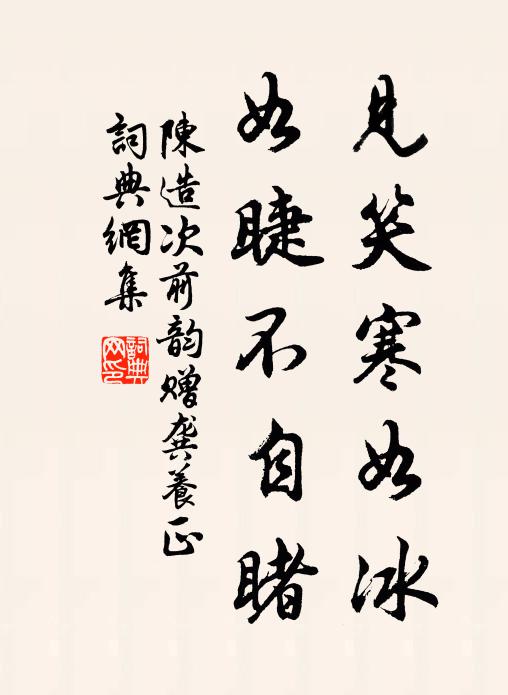 見笑寒如冰
如睫不自睹
陳造次前韵贈龔養正
詞典網集
詞典
網印